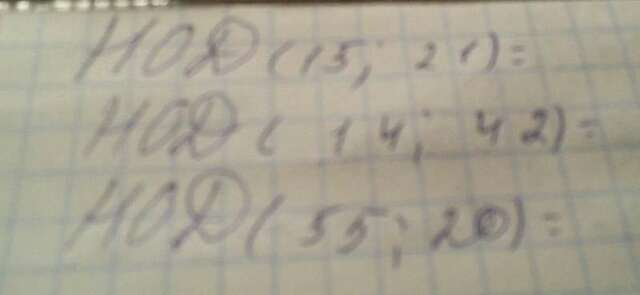 НОД (15; 21) =
НОД ( 14; 42) =
НОД ( 55; 20) =